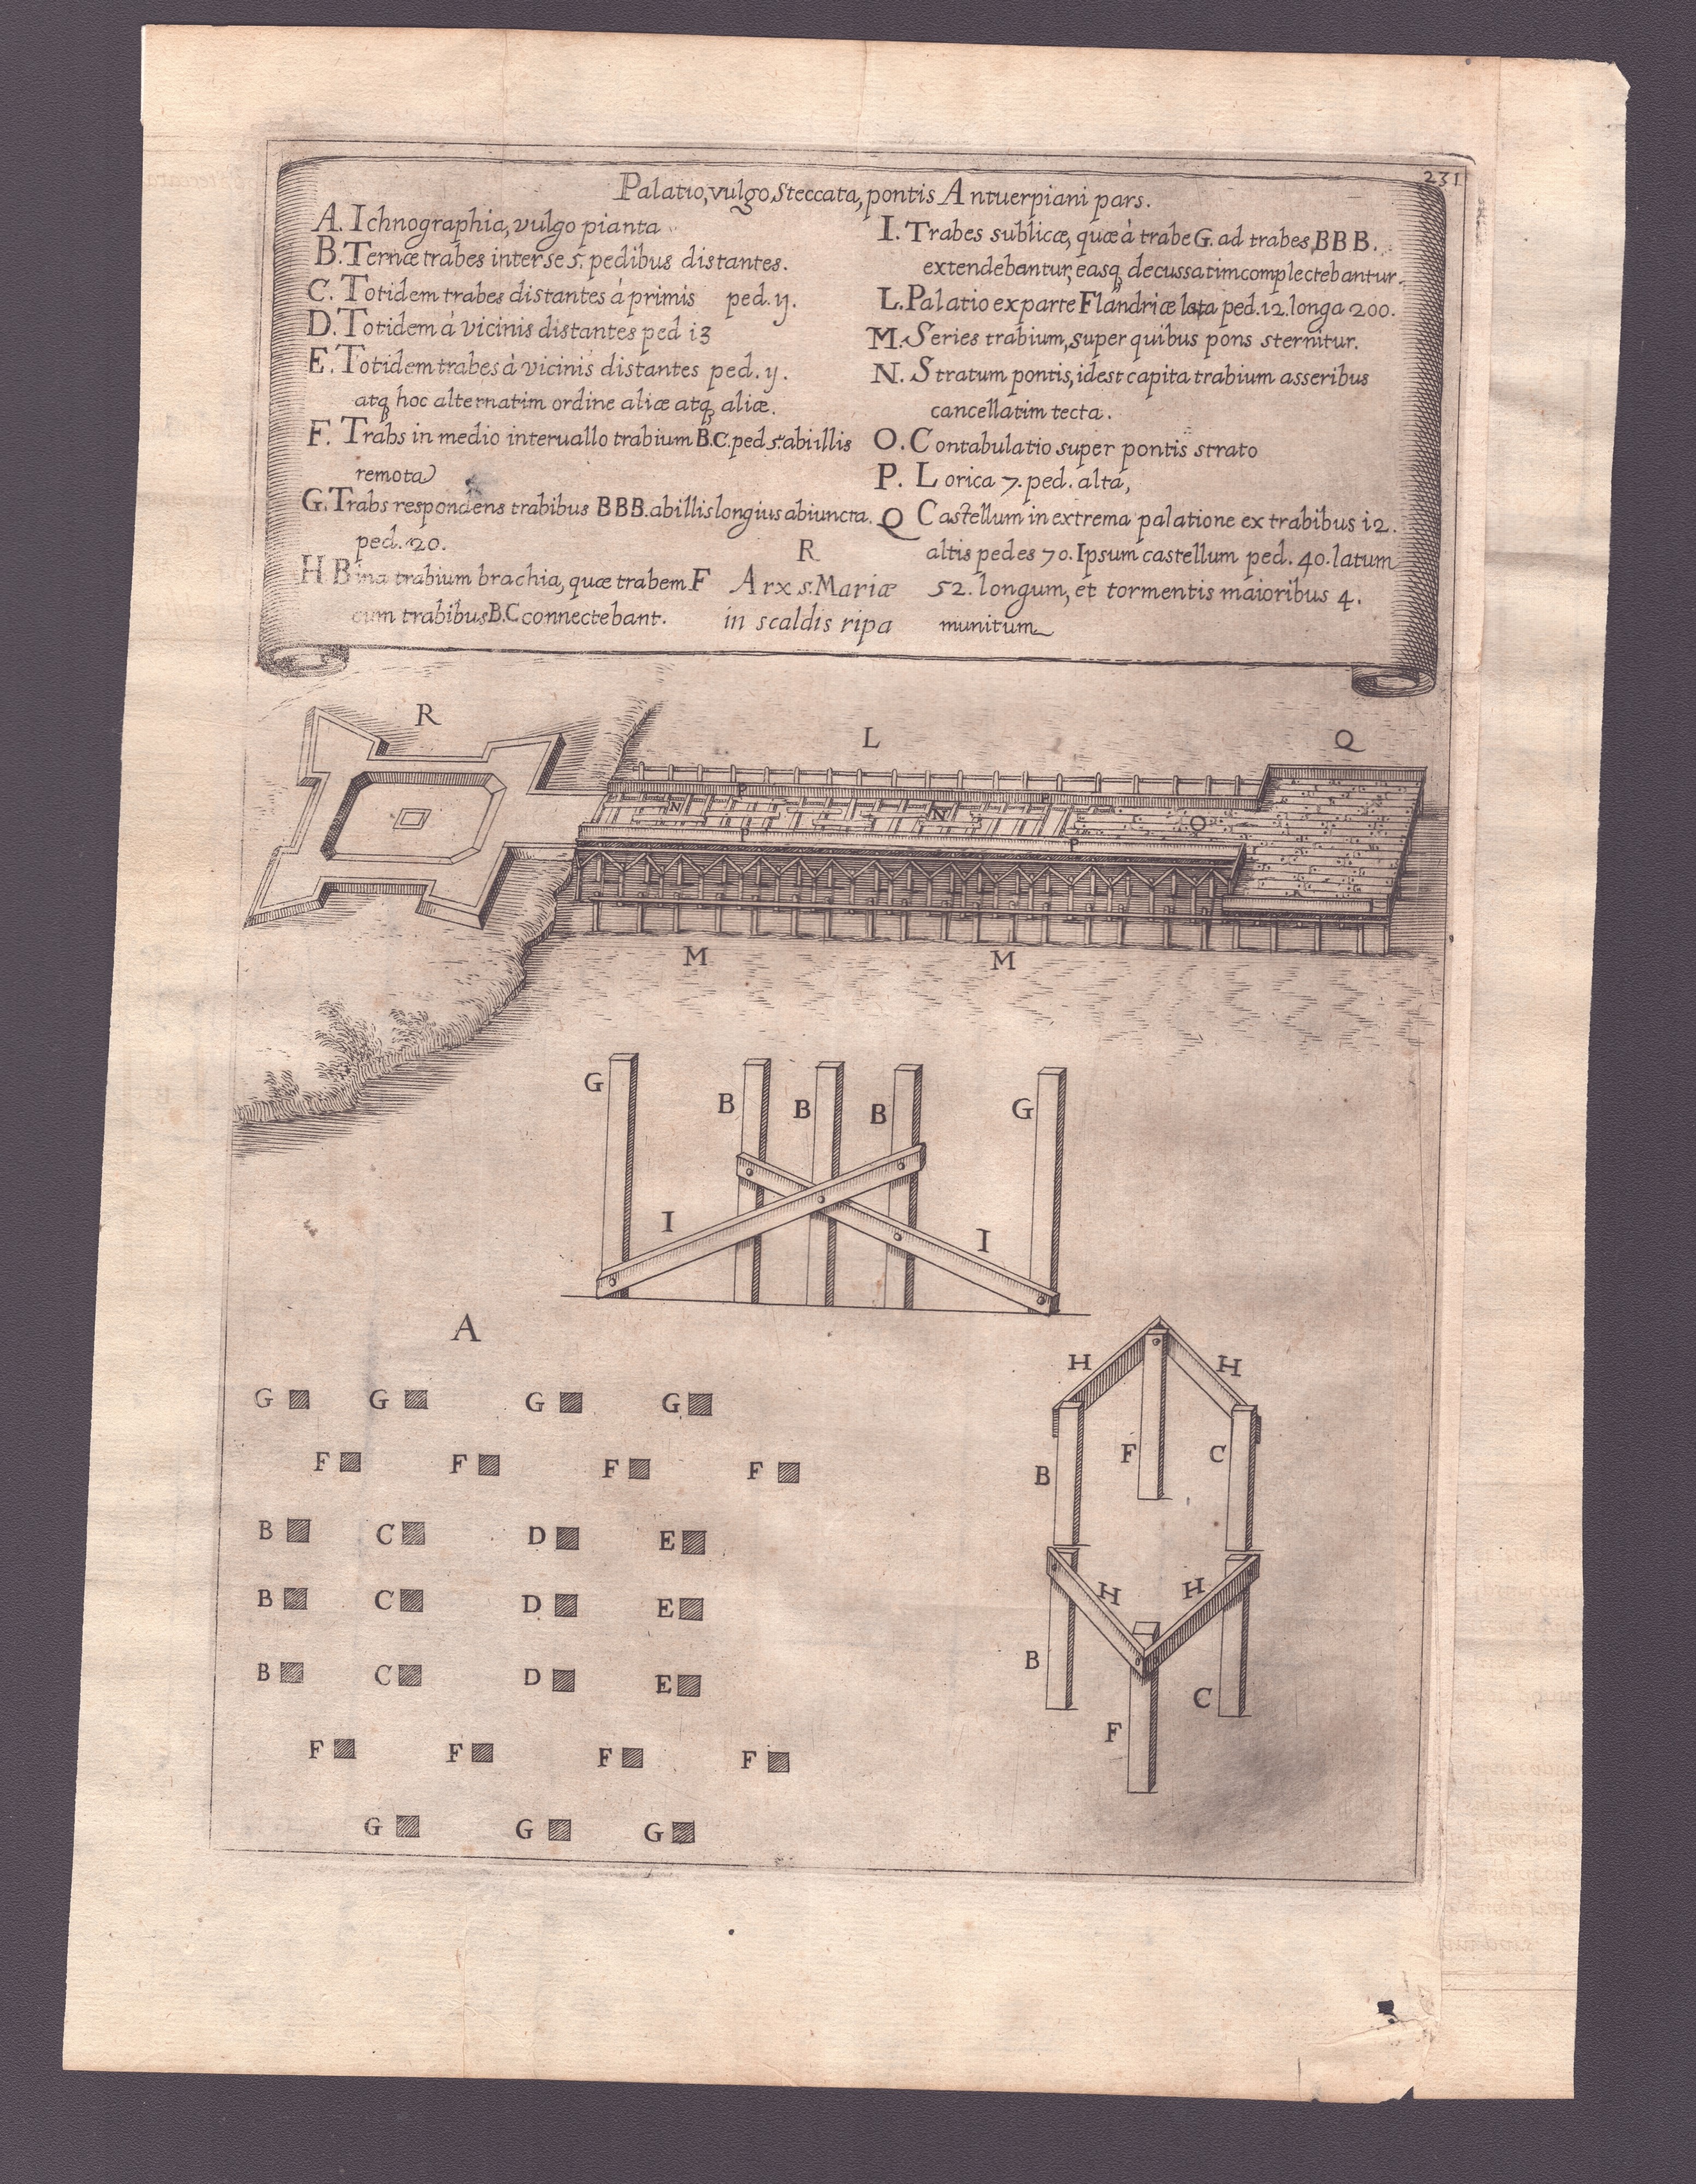 231
Palatio, vulgo Steccata, pontis Antuerpiani pars.
A. Ichnographia, vulgo pianta
B. Ternæ trabes inter se 5. pedibus distantes.
C. Totidem trabes distantes á primis ped. y.
D. Totidem á vicinis distantes ped i3
E. Totidem trabes à vicinis distantes ped. y.
atq hoc alternatim ordine aliæ atq aliæ.
F. Trabs in medio interuallo trabium B.C. ped 5. ab illis
remota
G. Trabs respondens trabibus BBB. ab illis longius abiuncta.
ped. 20.
H Bina trabium brachia, quæ trabem F
cum trabibus B.C connectebant.
R
Arx s. Mariæ
in scaldis ripa
I. Trabes sublicæ, quæ à trabe G. ad trabes BBB.
extendebantur, easq decussatim complectebantur.
L. Palatio ex parte Flandriæ lata ped. 12. longa 200.
M. Series trabium, super quibus pons sternitur.
N. Stratum pontis, idest capita trabium asseribus
cancellatim tecta.
O. Contabulatio super pontis strato
P. Lorica 7. ped. alta,
Q Castellum in extrema palatione ex trabibus i2.
altis pedes 70. Ipsum castellum ped. 40. latum
52. longum, et tormentis maioribus 4.
munitum
R L Q
P P
N N O
P P
M M
G B B B G
I I
A
G G G G
F F F F
B C D E
B C D E
B C D E
F F F F
G G G
H H
F C
B
H H
B
C
F